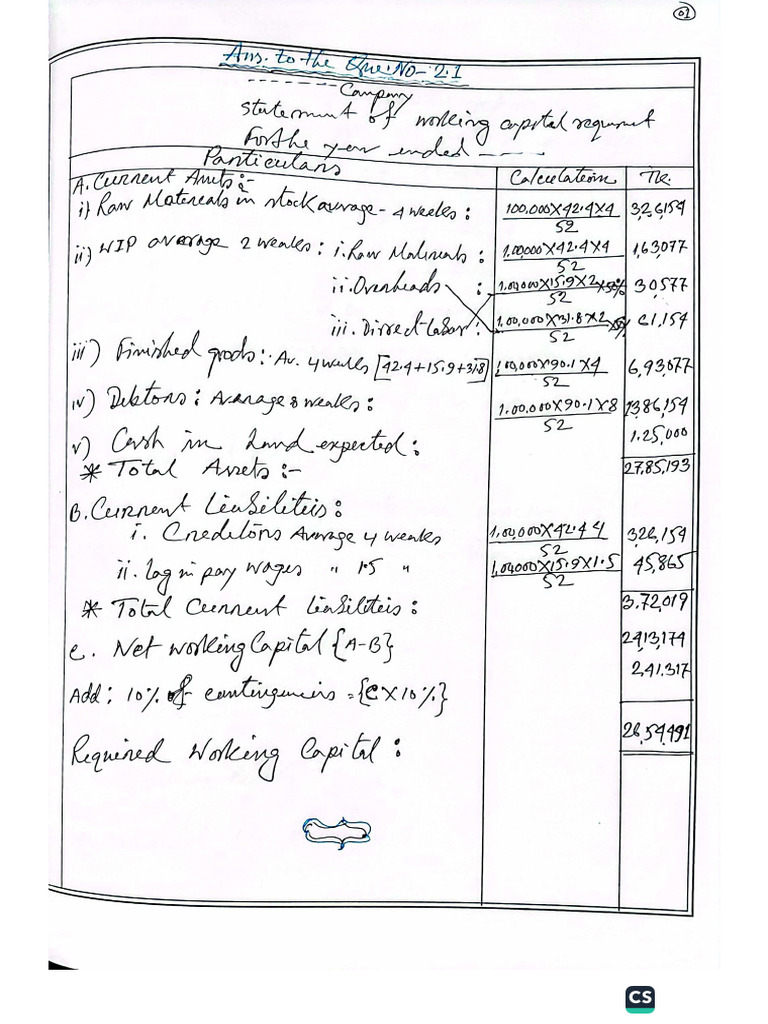 01
Ans. to the Que. No- 2.1
Company
Statement of working capital requirment
For the year ended
Particulars Calculation Tk.
A. Current Assets:-
i) Raw Materials in stock average - 4 weeks: 100,000×42.4×4 / 52 3,26,154
ii) WIP average 2 weaks: i. Raw Materials: 1,00,000×42.4×4 / 52 1,63,077
ii. Overheads : 1,00,000×15.9×2 / 52 ×50% 30,577
iii. Dirrect labor: 1,00,000×31.8×2 / 52 61,154
iii) Finished goods: Av. 4 weeks [42.4+15.9+31.8] 1,00,000×90.1×4 / 52 6,93,077
iv) Debtors: Average 8 weaks: 1,00,000×90.1×8 / 52 1386,154
v) Cash in hand expected: 1,25,000
* Total Assets:- 27,85,193
B. Current Liabilitis:
i. Creditors Average 4 weaks 1,00,000×42.4 4 / 52 326,154
ii. Lag in pay wages " 1.5 " 1,00,000×15.9×1.5 / 52 45,865
* Total Current liabilitis: 3,72,019
C. Net working Capital {A-B} 2413,174
Add: 10% of contingencis = {C×10%} 241,317
Required Working Capital: 26,54,491
CS